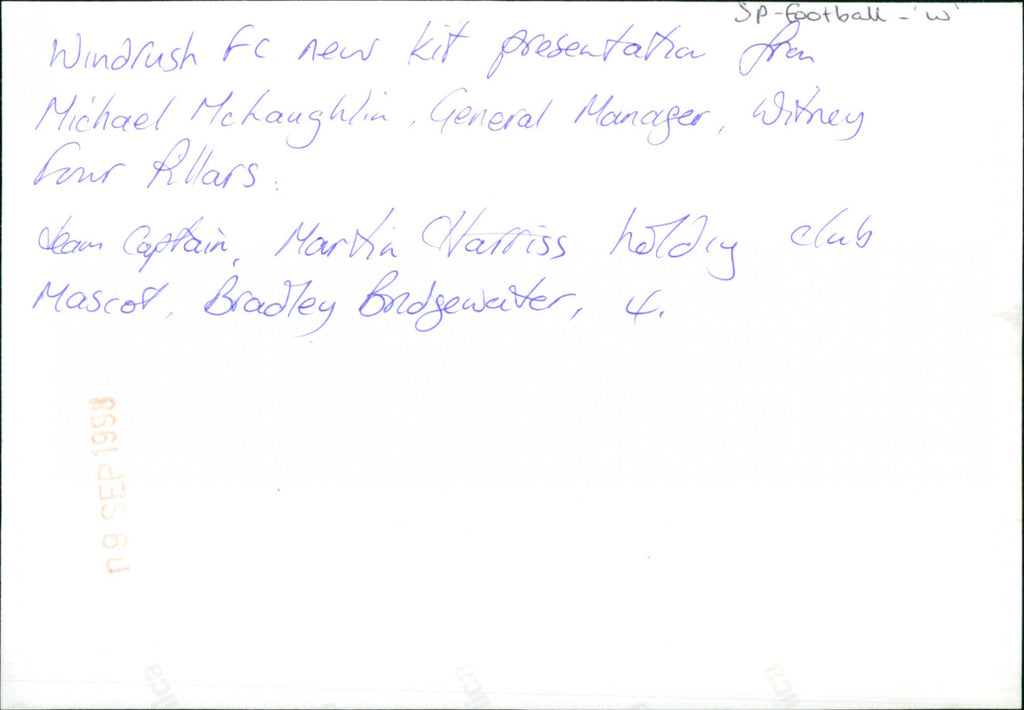 SP-Football - 'W'
Windrush FC new kit presentation from
Michael McLaughlin, General Manager, Witney
Four Pillars.
team Captain, Martin Harriss holding club
Mascot, Bradley Bridgewater, 4.
09 SEP 1998